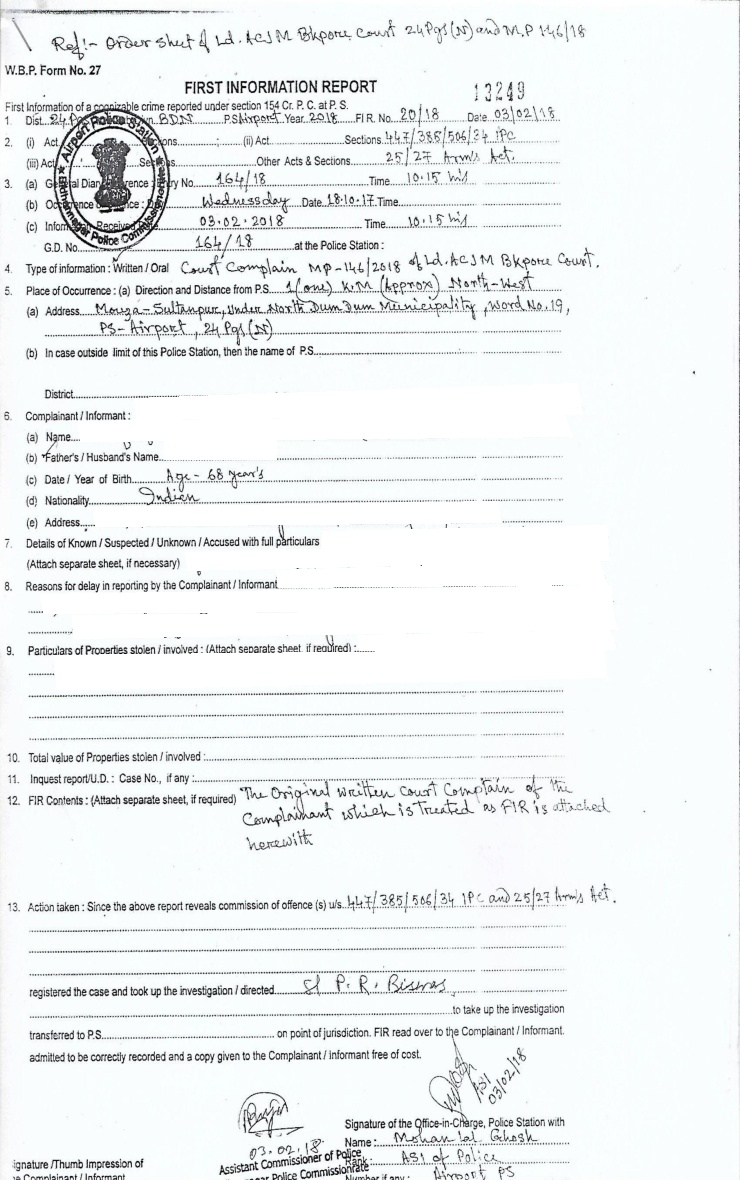 Ref:- Order sheet of Ld. ACJM Bkpore Court 24 Pgs (N) and M.P 146/18
W.B.P. Form No. 27
FIRST INFORMATION REPORT
13249
First Information of a cognizable crime reported under section 154 Cr. P. C. at P. S.
1. Dist. 24 P BDN P.S. Airport Year 2018 FIR. No. 20/18 Date 03/02/18
2. (i) Act Sections ; (ii) Act Sections 447/385/506/34 IPC
(iii) Act Sections Other Acts & Sections 25/27 Arms Act.
3. (a) General Diary Reference : Entry No. 164/18 Time 10.15 hrs
(b) Occurrence : Wednessday Date 18.10.17. Time
(c) Information Received 03.02.2018 Time 10.15 hrs
G.D. No. 164/18 at the Police Station :
Airport Police Station
Bidhannagar Police Commissionerate
4. Type of information : Written / Oral Court Complain MP-146/2018 of Ld. ACJM Bkpore Court.
5. Place of Occurrence : (a) Direction and Distance from P.S. 1 (one) K.M (Approx) North-West
(a) Address Mouza-Sultanpur, Under North Dum Dum Municipality, Word No. 19,
PS-Airport, 24 Pgs (N)
(b) In case outside limit of this Police Station, then the name of P.S.
District
6. Complainant / Informant :
(a) Name
(b) Father's / Husband's Name
(c) Date / Year of Birth Age - 68 year's
(d) Nationality Indian
(e) Address
7. Details of Known / Suspected / Unknown / Accused with full particulars
(Attach separate sheet, if necessary)
8. Reasons for delay in reporting by the Complainant / Informant
9. Particulars of Properties stolen / involved : (Attach separate sheet, if required) :
10. Total value of Properties stolen / involved :
11. Inquest report/U.D. : Case No., if any :
12. FIR Contents : (Attach separate sheet, if required) The Original written Court Complain of the
Complainant which is Treated as FIR is attached
herewith
13. Action taken : Since the above report reveals commission of offence (s) u/s. 447/385/506/34 IPC and 25/27 Arms Act.
registered the case and took up the investigation / directed SI P. R. Biswas
to take up the investigation
transferred to P.S. on point of jurisdiction. FIR read over to the Complainant / Informant.
admitted to be correctly recorded and a copy given to the Complainant / Informant free of cost.
ASI
03/02/18
Signature of the Office-in-Charge, Police Station with
03.02.18
Name : Mohan lal Ghosh
Assistant Commissioner of Police
Rank : ASI of Police
ignature /Thumb Impression of
Police Commissionerate
e Complainant / Informant
Number if any : Airport PS